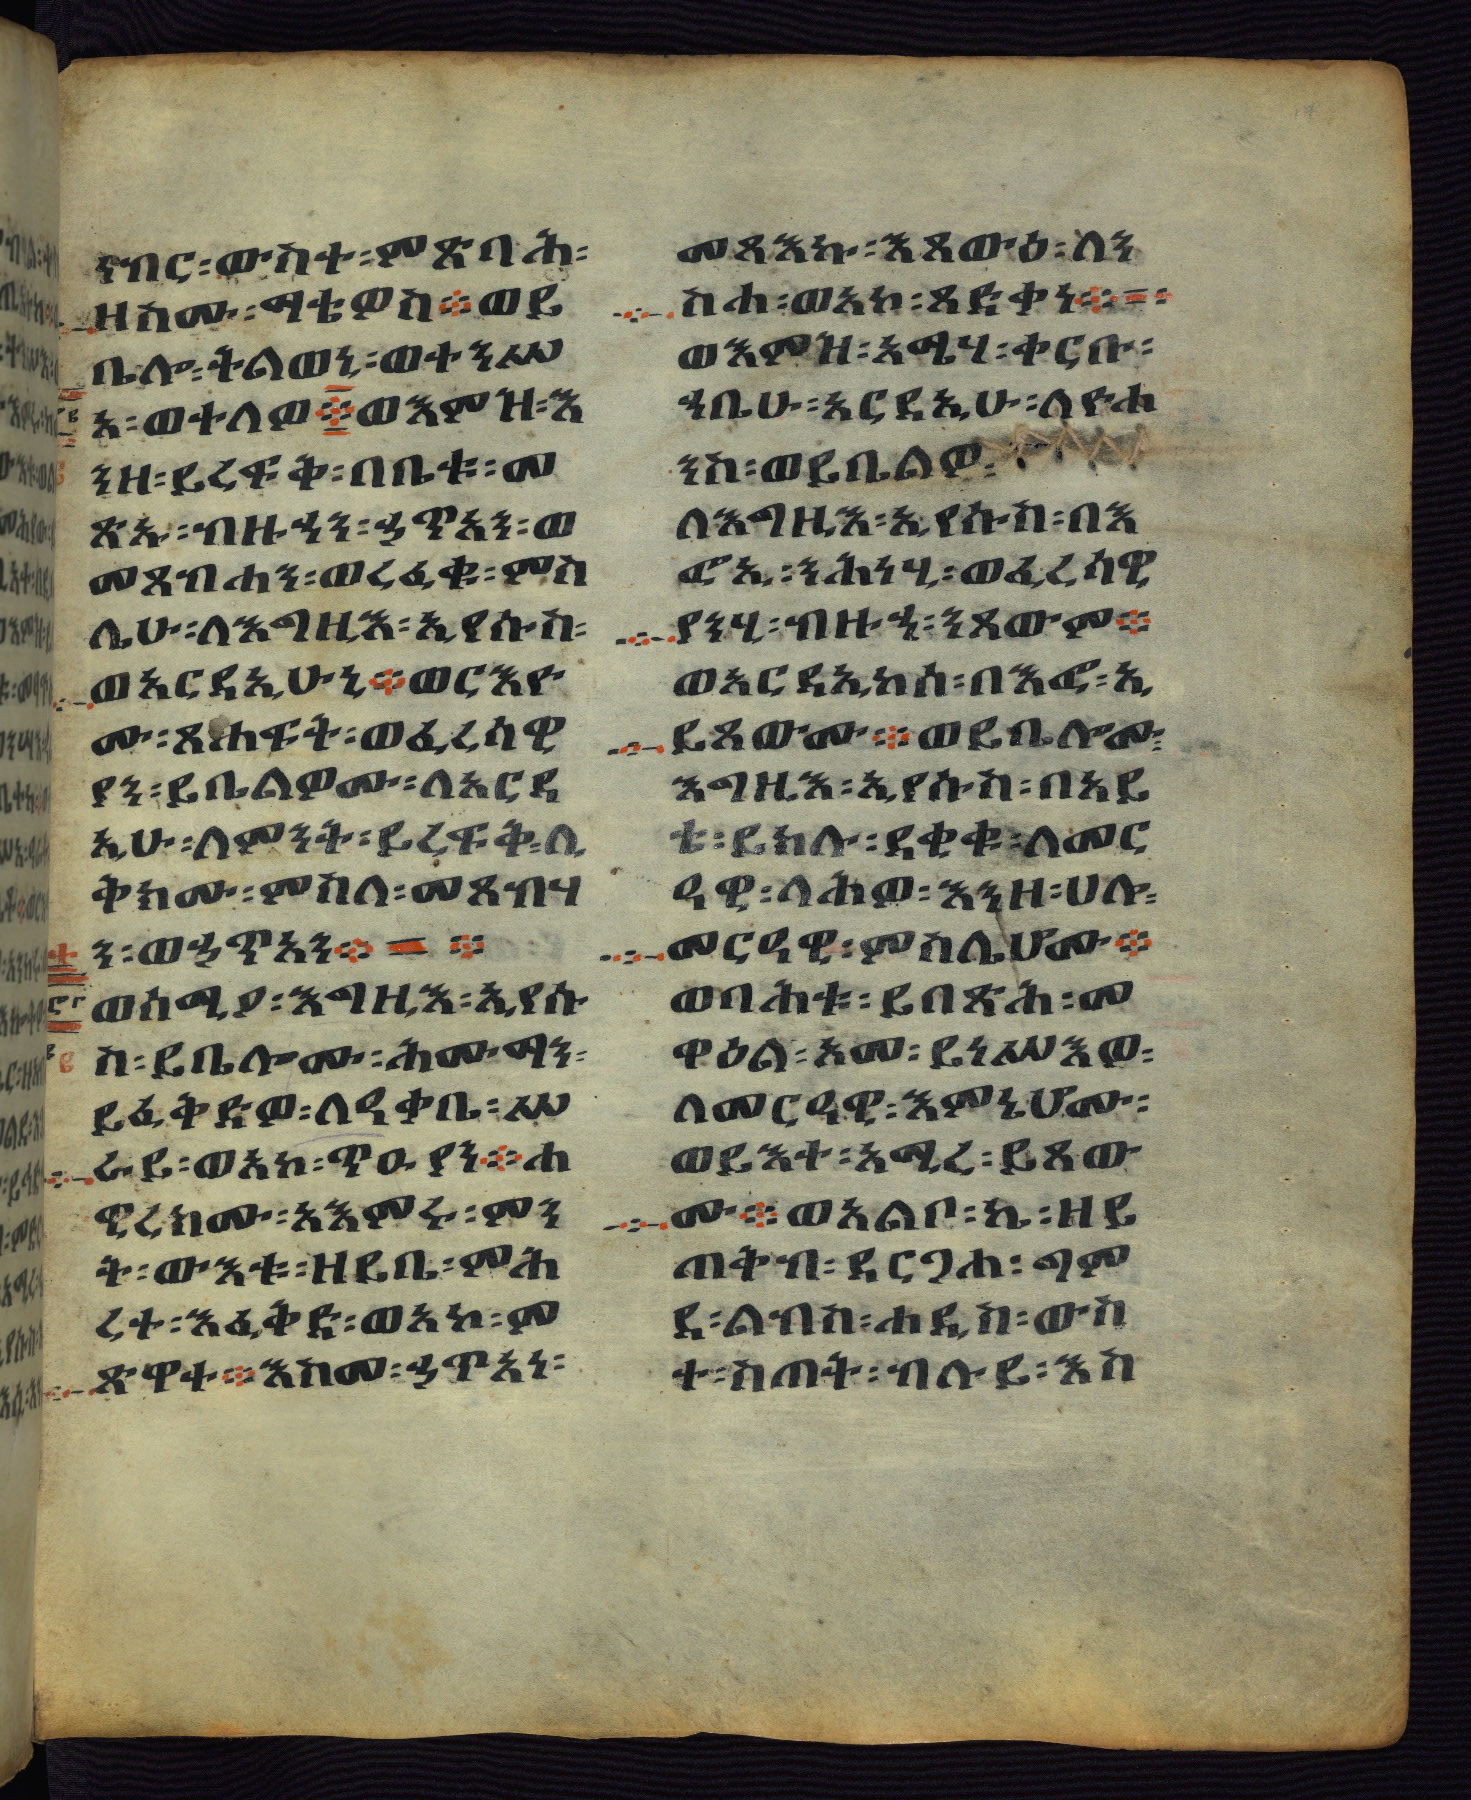 ይነብር፡ውስተ፡ምጽባሕ፡
ዘስሙ፡ማቴዎስ፨ወይ
ቤሎ፡ትልወኒ፡ወተንሥ
አ፡ወተለዎ፨ወእምዝ፡እ
ንዘ፡ይረፍቅ፡በቤቱ፡መ
ጽኡ፡ብዙኃን፡ኃጥአን፡ወ
መጸብሓን፡ወረፈቁ፡ምስ
ሌሁ፡ለእግዚእ፡ኢየሱስ፡
ወአርዳኢሁኒ፨ወርእዮ
ሙ፡ጸሐፍት፡ወፈሪሳዊ
ያን፡ይቤልዎሙ፡ለአርዳ
ኢሁ፡ለምንት፡ይረፍቅ፡ሊ
ቅክሙ፡ምስለ፡መጸብሃ
ን፡ወኃጥአን፨
ወሰሚዖ፡እግዚእ፡ኢየሱ
ስ፡ይቤሎሙ፡ሕሙማን፡
ይፈቅድዎ፡ለዓቃቤ፡ሥ
ራይ፡ወአኮ፡ጥዑያን፨ሐ
ዊረክሙ፡አእምሩ፡ምን
ት፡ውእቱ፡ዘይቤ፡ምሕ
ረተ፡እፈቅድ፡ወአኮ፡መ
ጽዋተ፨እስመ፡ኃጥአነ፡
መጻእኩ፡እጸውዕ፡ለን
ስሐ፡ወአኮ፡ጻድቃነ፨
ወእምዝ፡አሜሃ፡ቀርቡ፡
ኀቤሁ፡አርዳኢሁ፡ለዮሐ
ንስ፡ወይቤልዎ፡
ለእግዚእ፡ኢየሱስ፡በእ
ፎኢ፡ንሕነሂ፡ወፈሪሳዊ
ያነሂ፡ብዙኃ፡ንጸውም፨
ወአርዳኢከሰ፡በእፎ፡ኢ
ይጸውሙ፨ወይቤሎሙ፡
እግዚእ፡ኢየሱስ፡በአይ
ቴ፡ይክሉ፡ደቂቁ፡ለመር
ዓዊ፡ላሕወ፡እንዘ፡ሀሎ፡
መርዓዊ፡ምስሌሆሙ፨
ወባሕቱ፡ይበጽሕ፡መ
ዋዕል፡አመ፡ይነሥእዎ፡
ለመርዓዊ፡እምኔሆሙ፡
ወይእተ፡አሚረ፡ይጸው
ሙ፨ወአልቦ፡ኬ፡ዘይ
ጠቅብ፡ደርግሐ፡ግም
ደ፡ልብስ፡ሐዲስ፡ውስ
ተ፡ስጠት፡ብሉይ፡እስ